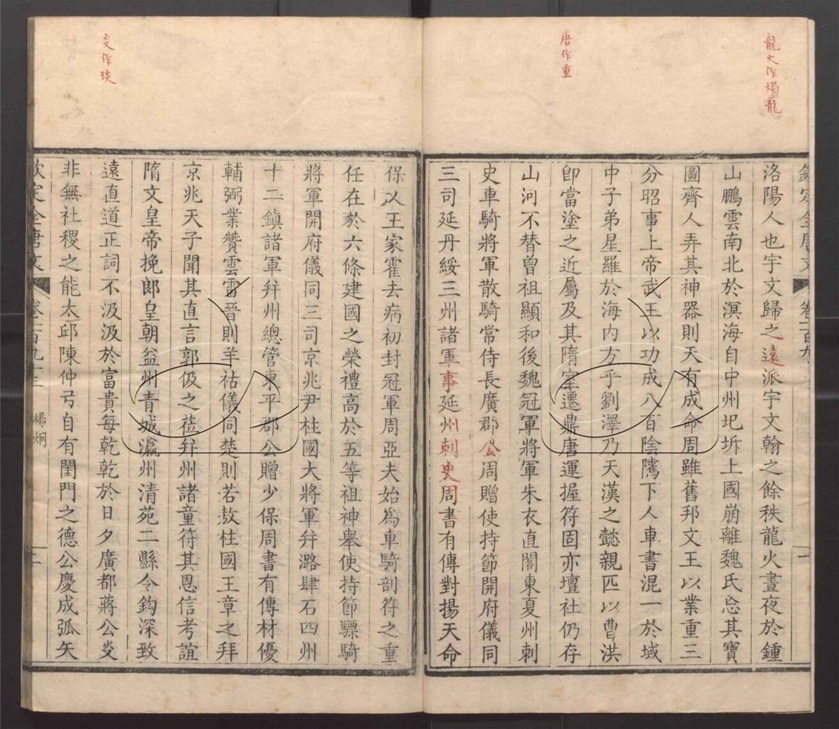 龍文作燭龍
唐作重
洛陽人也宇文歸之遠派宇文翰之餘秩龍火晝夜於鍾
山鵬雲南北於溟海自中州圮坼上國崩離魏氏忘其寶
圖齊人弄其神器則天有成命周雖舊邦文王以業重三
分昭事上帝武王以功成八百陰隲下人車書混一於域
中子弟星羅於海内方乎劉澤乃天漢之懿親匹以曹洪
卽當塗之近屬及其隋室遷鼎唐運握符固亦壇社仍存
山河不替曾祖顯和後魏冠軍將軍朱衣直閣東夏州刺
史車騎將軍散騎常侍長廣郡公周贈使持節開府儀同
三司延丹綏三州諸軍事延州刺史周書有傳對揚天命
炎作琰
保乂王家霍去病初封冠軍周亞夫始爲車騎剖符之重
任在於六條建國之榮禮高於五等祖神舉使持節驃騎
將軍開府儀同三司京兆尹柱國大將軍并潞肆石四州
十二鎮諸軍并州總管東平郡公贈少保周書有傳材優
輔弼業贊雲雷晉則羊祜儀同楚則若敖柱國王章之拜
京兆天子聞其直言郭伋之莅并州諸童符其恩信考誼
隋文皇帝挽郎皇朝益州青城瀛州清苑二縣令鈎深致
遠直道正詞不汲汲於富貴每乾乾於日夕廣都蔣公炎
非無社稷之能太邱陳仲弓自有閨門之德公慶成弧矢
欽定全唐文 卷一百九十三 楊炯